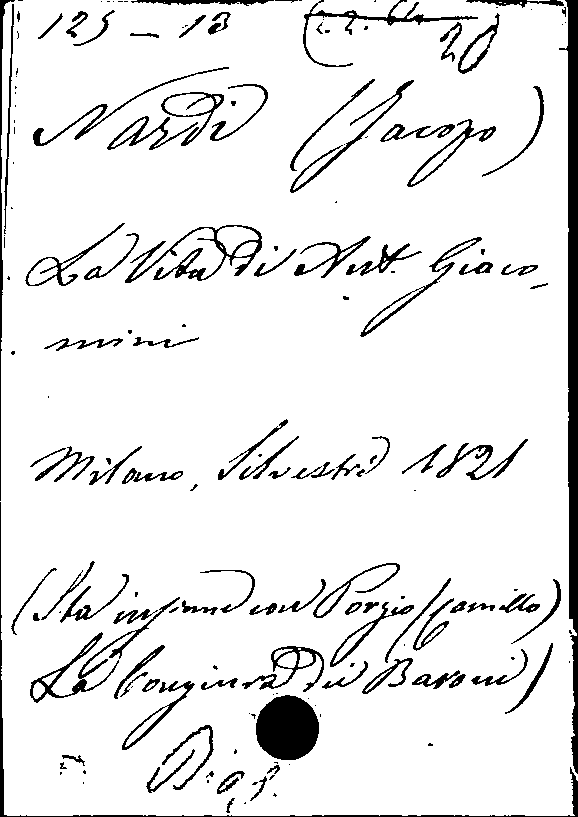 125 - 13
20
Nardi (Jacopo)
La Vita di Ant. Giaco-
mini
Milano, Silvestri 1821
(Sta insieme con Porzio (Camillo)
La Congiura dei Baroni)